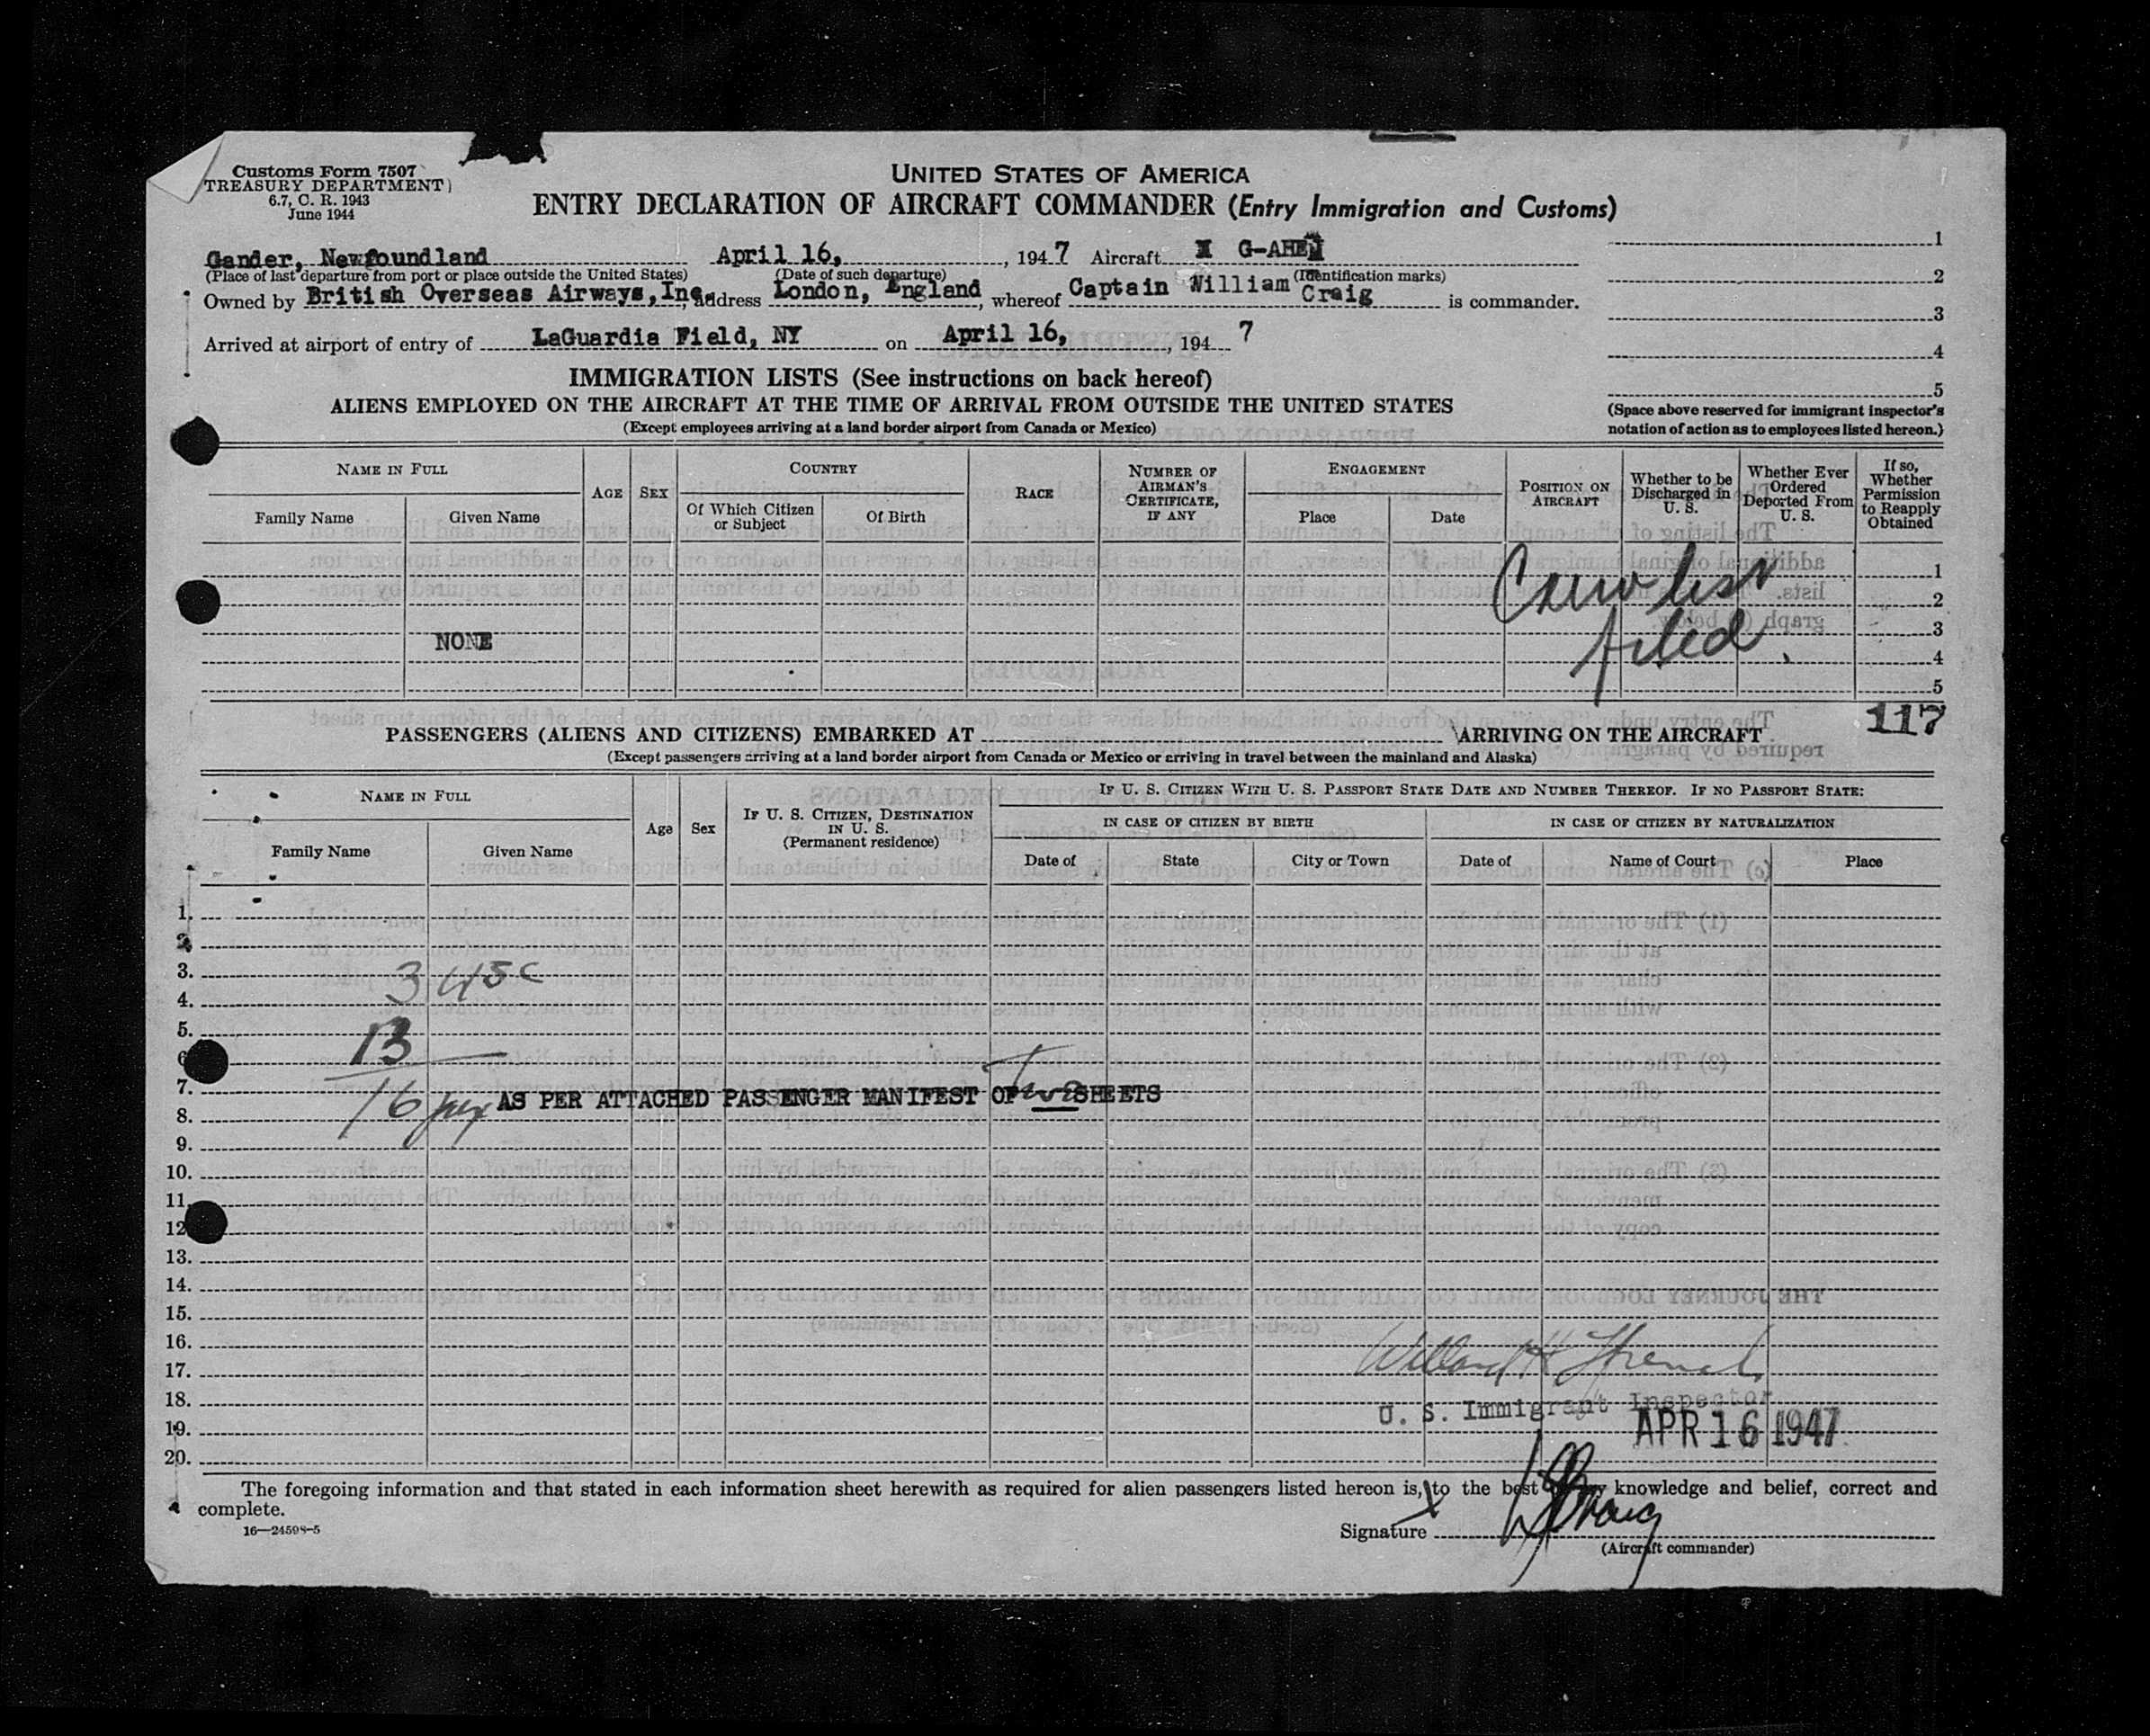 Customs Form 7507
TREASURY DEPARTMENT
6.7, C. R. 1943
June 1944
UNITED STATES OF AMERICA
ENTRY DECLARATION OF AIRCRAFT COMMANDER (Entry Immigration and Customs)
Gander, Newfoundland April 16, , 1947 Aircraft G-AHE
(Place of last departure from port or place outside the United States) (Date of such departure) (Identification marks)
Owned by British Overseas Airways, Inc. address London, England, whereof Captain William Craig is commander.
Arrived at airport of entry of LaGuardia Field, NY on April 16, , 194 7
1
2
3
4
5
(Space above reserved for immigrant inspector's
notation of action as to employees listed hereon.)
IMMIGRATION LISTS (See instructions on back hereof)
ALIENS EMPLOYED ON THE AIRCRAFT AT THE TIME OF ARRIVAL FROM OUTSIDE THE UNITED STATES
(Except employees arriving at a land border airport from Canada or Mexico)
NAME IN FULL
Family Name Given Name
AGE SEX
COUNTRY
Of Which Citizen or Subject Of Birth
RACE
NUMBER OF AIRMAN'S CERTIFICATE, IF ANY
ENGAGEMENT
Place Date
POSITION ON AIRCRAFT
Whether to be Discharged in U. S.
Whether Ever Ordered Deported From U. S.
If so, Whether Permission to Reapply Obtained
1
2
3
4
5
NONE
Crew list
filed
117
PASSENGERS (ALIENS AND CITIZENS) EMBARKED AT ARRIVING ON THE AIRCRAFT
(Except passengers arriving at a land border airport from Canada or Mexico or arriving in travel between the mainland and Alaska)
NAME IN FULL
Family Name Given Name
Age Sex
IF U. S. CITIZEN, DESTINATION IN U. S. (Permanent residence)
IF U. S. CITIZEN WITH U. S. PASSPORT STATE DATE AND NUMBER THEREOF. IF NO PASSPORT STATE:
IN CASE OF CITIZEN BY BIRTH IN CASE OF CITIZEN BY NATURALIZATION
Date of State City or Town Date of Name of Court Place
1.
2.
3.
3 USC
4.
5.
13
6
7.
16 AS PER ATTACHED PASSENGER MANIFEST OF Two SHEETS
8.
9.
10.
11.
12
13.
14.
15.
16.
17.
18.
19.
20.
U. S. Immigrant Inspector
APR 16 1947
The foregoing information and that stated in each information sheet herewith as required for alien passengers listed hereon is, to the best knowledge and belief, correct and
complete.
16—24598-5
Signature Craig
(Aircraft commander)